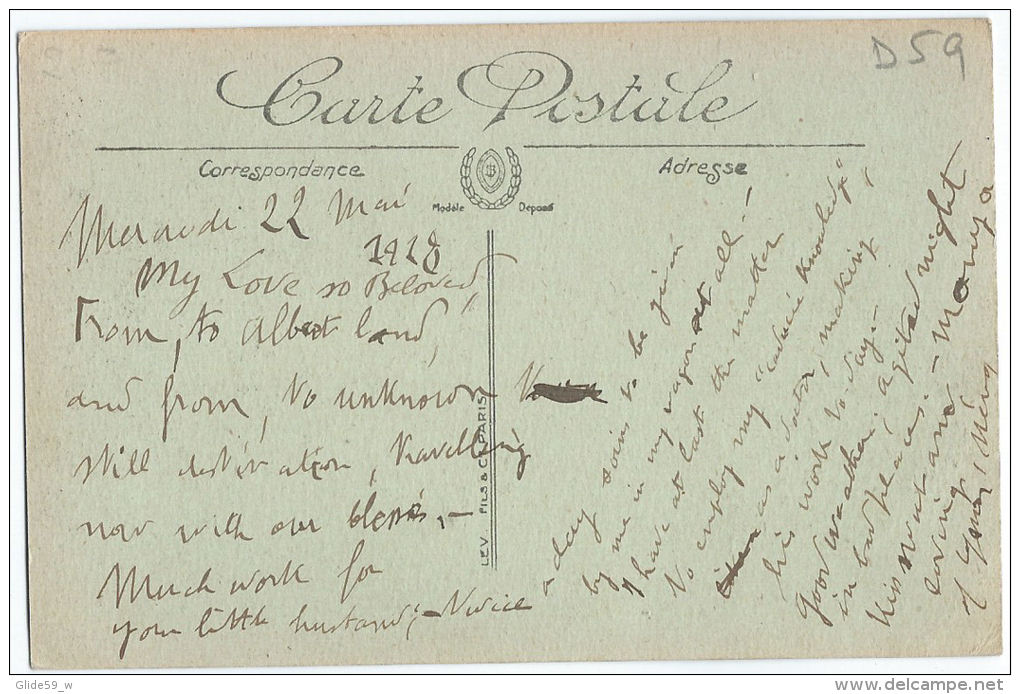 D59
Carte Postale
Correspondance
Adresse
Modèle Déposé
LEV. FILS & Cie PARIS
22 Mai
1918
My Love so Beloved,
From, to Albert land,
and from, to unknown
still destination, travelling
now with our blessés,-
Much work for
your little husband,- Twice
a day soins to be given
by me in my wagon all!
I have at last the matter
to employ my knowledge"
as a doctor, making
his work to day,-
good weather. agitated night
in bad places.-
Kiss and - many a
loving,
of your
Glide59_w
delcampe.net